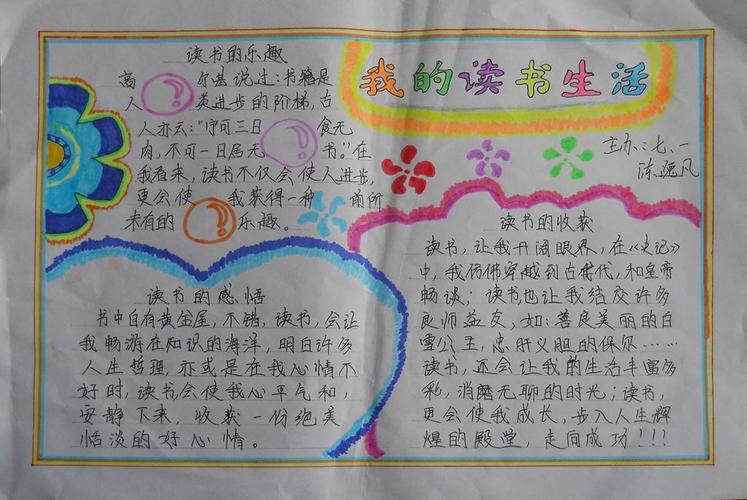 我的读书生活
主办:七、一
陈逸凡
读书的乐趣
高尔基说过:书籍是
人类进步的阶梯,古
人亦云:"宁可三日食无
肉,不可一日居无书。"在
我看来,读书不仅会使人进步,
更会使我获得一种前所
未有的乐趣。
读书的感悟
书中自有黄金屋,不错,读书,会让
我畅游在知识的海洋,明白许多
人生哲理,亦或是在我心情不
好时,读书会使我心平气和,
安静下来,收获一份绝美
恬淡的好心情。
读书的收获
读书,让我开阔眼界,在《史记》
中,我仿佛穿越到古时代,和皇帝
畅谈;读书也让我结交许多
良师益友,如:善良美丽的白
雪公主,忠肝义胆的保尔……
读书,还会让我的生活丰富多
彩,消磨无聊的时光;读书,
更会使我成长,步入人生辉
煌的殿堂,走向成功!!!